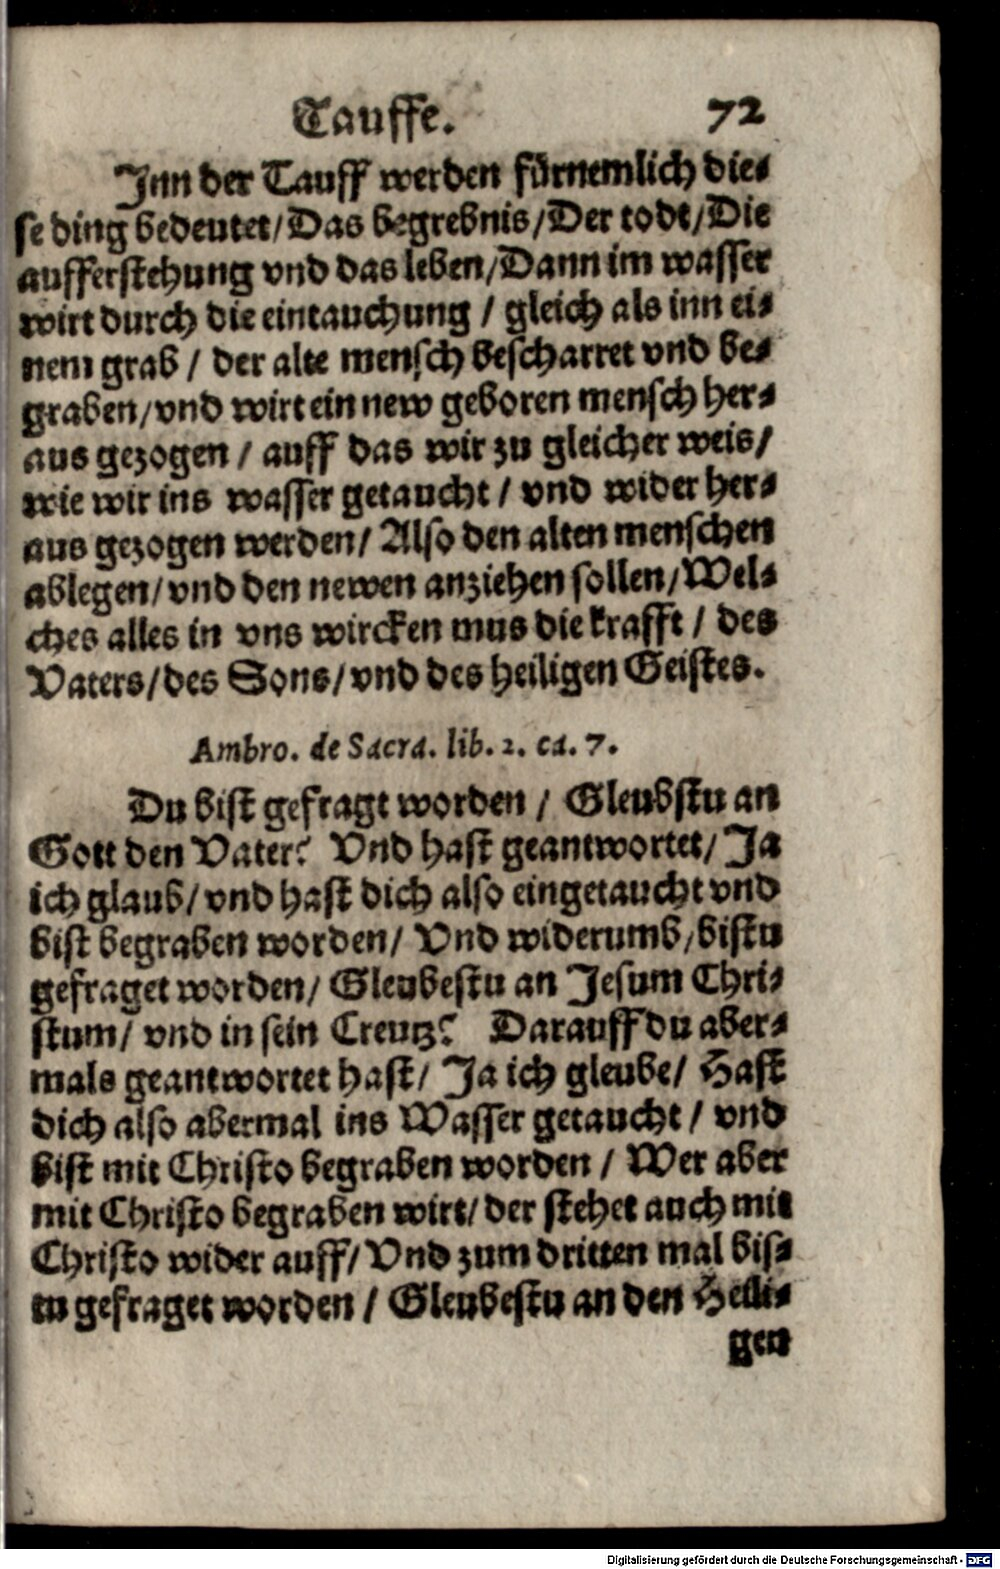 Tauffe. 72
Jnn der Tauff werden fürnemlich die-
se ding bedeutet/ Das begrebnis/ Der todt/ Die
aufferstehung vnd das leben/ Dann im wasser
wirt durch die eintauchung / gleich als inn ei-
nem grab / der alte mensch bescharret vnd be-
graben/ vnd wirt ein new geboren mensch her-
aus gezogen / auff das wir zu gleicher weis/
wie wir ins wasser getaucht / vnd wider her-
aus gezogen werden/ Also den alten menschen
ablegen/ vnd den newen anziehen sollen/ Wel-
ches alles in vns wircken mus die krafft / des
Vaters/ des Sons/ vnd des heiligen Geistes.
Ambro. de Sacra. lib. 2. ca. 7.
Du bist gefragt worden / Gleubstu an
Gott den Vater? Vnd hast geantwortet/ Ja
ich glaub/ vnd hast dich also eingetaucht vnd
bist begraben worden/ Vnd widerumb/ bistu
gefraget worden/ Gleubestu an Jesum Chri-
stum/ vnd in sein Creutz? Darauff du aber-
mals geantwortet hast/ Ja ich gleube/ Hast
dich also abermal ins Wasser getaucht / vnd
bist mit Christo begraben worden / Wer aber
mit Christo begraben wirt/ der stehet auch mit
Christo wider auff/ Vnd zum dritten mal bis-
tu gefraget worden / Gleubestu an den Heili-
gen
Digitalisierung gefördert durch die Deutsche Forschungsgemeinschaft - DFG